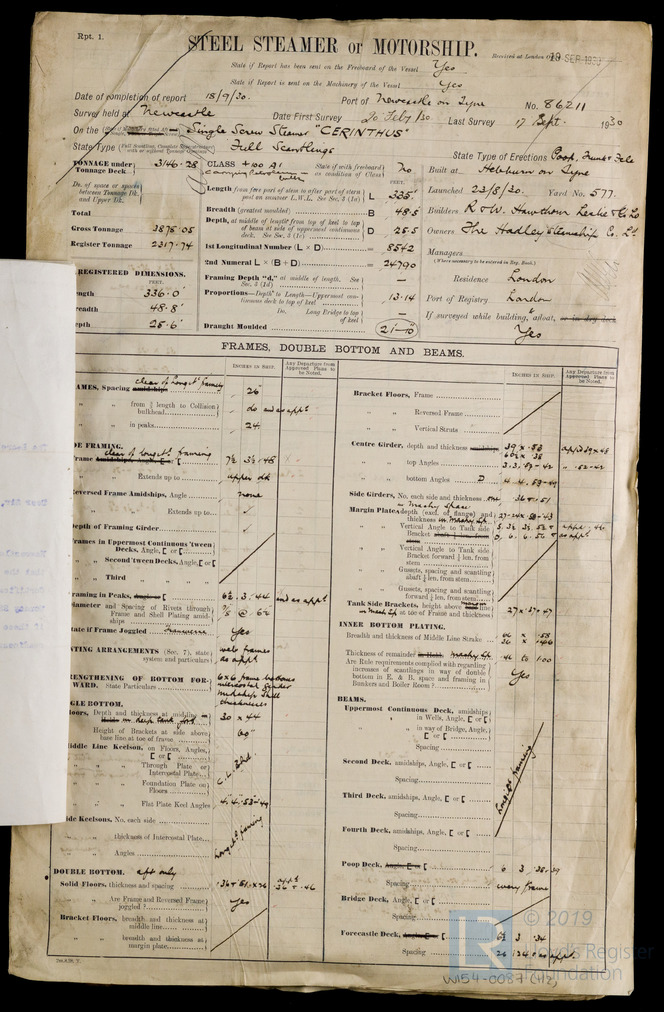 Rpt. 1.
STEEL STEAMER or MOTORSHIP.
Received at London 19 SEP 1930
State if Report has been sent on the Freeboard of the Vessel Yes
State if Report is sent on the Machinery of the Vessel Yes
Date of completion of report 18/9/30. Port of Newcastle on Tyne No. 86211
Survey held at Newcastle Date First Survey 20 Feby/30 Last Survey 17 Sept. 1930
On the Single Screw Steamer "CERINTHUS"
State Type Full Scantlings State Type of Erections Poop,
TONNAGE under Tonnage Deck 3146.28
Do. of space or spaces between Tonnage Dk. and Upper Dk.
Total
Gross Tonnage 3878.05
Register Tonnage 2317.74
REGISTERED DIMENSIONS.
FEET.
ngth 336.0'
readth 48.8'
epth 25.6'
CLASS +100 A1
State if with freeboard as condition of Class No
FEET.
Length from fore part of stem to after part of stern post on summer L.W.L. See Sec. 3 (1a) L 335'
Breadth (greatest moulded) B 48.5
Depth, at middle of length from top of keel to top of beam at side of uppermost continuous deck. See Sec. 3 (1c) D 25.5
1st Longitudinal Number (L × D) = 8542
2nd Numeral L × (B + D) = 24790
Framing Depth "d," at middle of length. See Sec. 3 (1d) —
Proportions—Depth to Length—Uppermost continuous deck to top of keel 13.14
Do. Long Bridge to top of keel —
Draught Moulded 21'-10"
Built at Hebburn on Tyne
Launched 23/8/30. Yard No. 577.
Builders R & W. Hawthorn Leslie & Co Ld
Owners The Hadley Steamship Co. Ld.
Managers
(Where necessary to be entered in Reg. Book.)
Residence London
Port of Registry London
If surveyed while building, afloat, or in dry dock
Yes
FRAMES, DOUBLE BOTTOM AND BEAMS.
INCHES IN SHIP.
Any Departure from Approved Plans to be Noted.
AMES, Spacing amidships clear of longtl framing 26
" " from ⅗ length to Collision bulkhead do
" " in peaks 24
DE FRAMING. clear of longtl framing
rame Amidships, Angle, [ or [ 7½ 3½ .48
" " Extends up to upper dk
eversed Frame Amidships, Angle none
" " Extends up to
epth of Framing Girder
rames in Uppermost Continuous 'tween Decks, Angle, [ or [
" " Second 'tween Decks, Angle, [ or [
" " Third " " " "
raming in Peaks, Angle or [ 6½ . 3 . 46
iameter and Spacing of Rivets through Frame and Shell Plating amidships ⅞ @ 6½
tate if Frame Joggled Yes
ATING ARRANGEMENTS (Sec. 7), state system and particulars web frames as appd
ENGTHENING OF BOTTOM FORWARD. State Particulars
NGLE BOTTOM.
loors, Depth and thickness at mid-line 30 × 44
Height of Brackets at side above base line at toe of frame 60"
iddle Line Keelson, on Floors, Angles, [ or [
" " Through Plate or Intercostal Plate
" " Foundation Plate on Floors
" " Flat Plate Keel Angles 4. 4. .53-.49
ide Keelsons. No. each side
" " thickness of Intercostal Plate
" " Angles
DOUBLE BOTTOM. aft only
Solid Floors, thickness and spacing
" " Are Frame and Reversed Frame joggled? Yes
Bracket Floors, breadth and thickness at middle line
" " breadth and thickness at margin plate
INCHES IN SHIP.
Any Departure from Approved Plans to be Noted.
Bracket Floors, Frame
" " Reversed Frame
" " Vertical Struts
Centre Girder, depth and thickness amidships 39 × .53 appd 39×48
" " top Angles " .52-.42
" " bottom Angles
Side Girders, No. each side and thickness
Margin Plate, depth (excl. of flange) and thickness
" " Vertical Angle to Tank side Bracket abaft ¼ len. from stem
" " Vertical Angle to Tank side Bracket forward ¼ len. from stem
" " Gussets, spacing and scantling abaft ¼ len. from stem
" " Gussets, spacing and scantling forward ¼ len. from stem
Tank Side Brackets, height above and at toe of Frame and thickness
INNER BOTTOM PLATING.
Breadth and thickness of Middle Line Strake
Thickness of remainder in Hold .46 to 1.00
Are Rule requirements complied with regarding increases of scantlings in way of double bottom in E. & B. space and framing in Bunkers and Boiler Room? Yes
BEAMS.
Uppermost Continuous Deck, amidships in Wells, Angle, [ or [
" " in way of Bridge, Angle, [ or [
Spacing
Second Deck, amidships, Angle, [ or [
Spacing
Third Deck, amidships, Angle, [ or [
Spacing
Fourth Deck, amidships, Angle, [ or [
Spacing
Longtl framing
Poop Deck, Angle, [ or [ 6 3 .38 .39
Spacing every frame
Bridge Deck, Angle, [ or [
Spacing
Forecastle Deck, Angle, [ or [ 6½ 3 .34
Spacing
© 2019
Lloyd's Register
Foundation
W154-0087 (1/2)